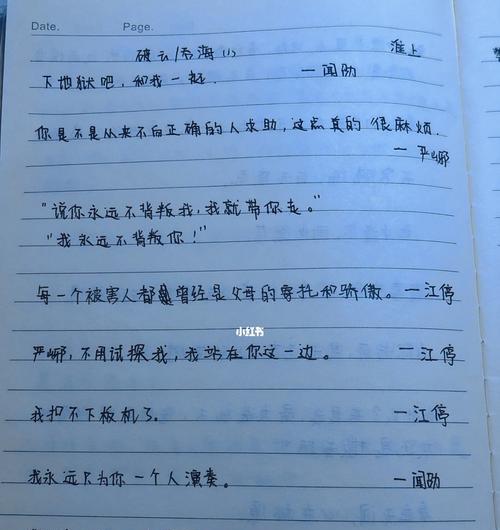 Date. Page.
破云/吞海(1) 淮上
下地狱吧,和我一起. —闻劭
你是不是从来不向正确的人求助,这点真的很麻烦.
—严峫
"说你永远不背叛我,我就带你走。"
"我永远不背叛你!"
每一个被害人都曾经是父母的寄托和骄傲。—江停
小红书
严峫,不用试探我,我站在你这一边。 —江停
我扣不下板机了。 —江停
我永远只为你一个人演奏。 —闻劭
Date. Page.